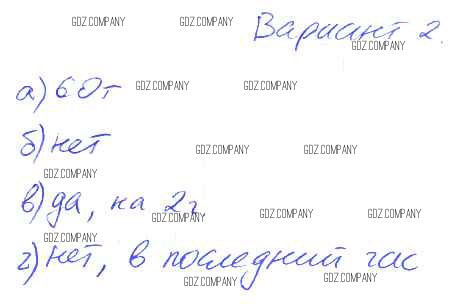 GDZ.COMPANY GDZ.COMPANY GDZ.COMPANY
Вариант 2.
GDZ.COMPANY
а) 60т GDZ.COMPANY GDZ.COMPANY
б) нет GDZ.COMPANY GDZ.COMPANY
GDZ.COMPANY
в) да, на 2т GDZ.COMPANY GDZ.COMPANY GDZ.COMPANY
GDZ.COMPANY
г) нет, в последний час
GDZ.COMPANY GDZ.COMPANY